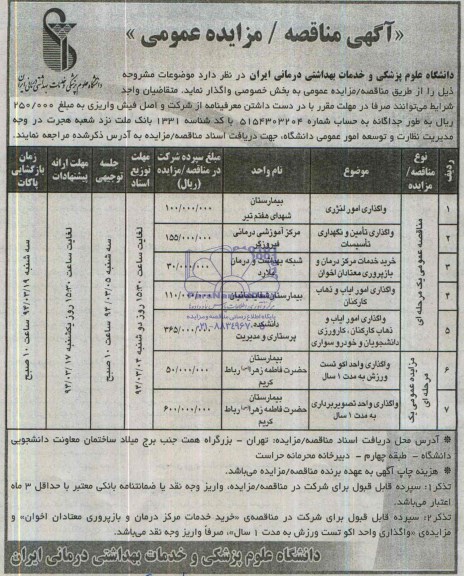 «آگهی مناقصه / مزایده عمومی»
دانشگاه علوم پزشکی و خدمات بهداشتی درمانی ایران
دانشگاه علوم پزشکی و خدمات بهداشتی درمانی ایران در نظر دارد موضوعات مشروحه
ذیل را از طریق مناقصه/مزایده عمومی به بخش خصوصی واگذار نماید. متقاضیان واجد
شرایط می‌توانند صرفا در مهلت مقرر با در دست داشتن معرفینامه از شرکت و اصل فیش واریزی به مبلغ ۲۵۰/۰۰۰
ریال به طور جداگانه به حساب شماره ۵۱۵۴۳۰۳۲۰۴ با کد شناسه ۱۳۳۱ بانک ملت نزد شعبه هجرت در وجه
مدیریت نظارت و توسعه امور عمومی دانشگاه، جهت دریافت اسناد مناقصه/مزایده به آدرس ذکرشده مراجعه نمایند.
ردیف
نوع مناقصه/ مزایده
موضوع
نام واحد
مبلغ سپرده شرکت در مناقصه/مزایده (ریال)
مهلت توزیع اسناد
جلسه توجیهی
مهلت ارائه پیشنهادات
زمان بازگشایی پاکات
۱ واگذاری امور لنژری بیمارستان شهدای هفتم تیر ۱۰۰/۰۰۰/۰۰۰
۲ واگذاری تأمین و نگهداری تأسیسات مرکز آموزشی درمانی فیروزگر ۱۵۵/۰۰۰/۰۰۰
۳ خرید خدمات مرکز درمان و بازپروری معتادان اخوان شبکه بهداشت و درمان ملارد ۳۰/۰۰۰/۰۰۰
۴ واگذاری امور ایاب و ذهاب کارکنان بیمارستان ۱۱۰/۰۰۰/۰۰۰
۵ واگذاری امور ایاب و ذهاب کارکنان، کارورزی دانشجویان و خودرو سواری دانشکده پرستاری و مدیریت ۳۶۵/۰۰۰/۰۰۰
۶ واگذاری واحد اکو تست ورزش به مدت ۱ سال بیمارستان حضرت فاطمه زهرا(س) رباط کریم ۵۰/۰۰۰/۰۰۰
۷ واگذاری واحد تصویربرداری به مدت ۱ سال بیمارستان حضرت فاطمه زهرا(س) رباط کریم ۶۰۰/۰۰۰/۰۰۰
مناقصه عمومی یک مرحله ای
مزایده عمومی یک مرحله ای
لغایت ساعت ۱۵:۳۰ روز دو شنبه ۹۴/۰۳/۰۴
سه شنبه ۹۴/۰۳/۰۵ ساعت ۱۰ صبح
لغایت ساعت ۱۵:۳۰ روز یکشنبه ۹۴/۰۳/۱۷
سه شنبه ۹۴/۰۳/۱۹ ساعت ۱۰ صبح
پایگاه اطلاع رسانی مناقصه و مزایده
۰۲۱-۸۸۳۴۹۶۷۰
* آدرس محل دریافت اسناد مناقصه/مزایده: تهران - بزرگراه همت جنب برج میلاد ساختمان معاونت دانشجویی
دانشگاه - طبقه چهارم - دبیرخانه محرمانه حراست
* هزینه چاپ آگهی به عهده برنده مناقصه/مزایده می‌باشد.
تذکر۱: سپرده قابل قبول برای شرکت در مناقصه/مزایده، واریز وجه نقد یا ضمانتنامه بانکی معتبر با حداقل ۳ ماه
اعتبار می‌باشد.
تذکر۲: سپرده قابل قبول برای شرکت در مناقصه‌ی «خرید خدمات مرکز درمان و بازپروری معتادان اخوان» و
مزایده‌ی «واگذاری واحد اکو تست ورزش به مدت ۱ سال»، صرفاً واریز وجه نقد می‌باشد.
دانشگاه علوم پزشکی و خدمات بهداشتی درمانی ایران